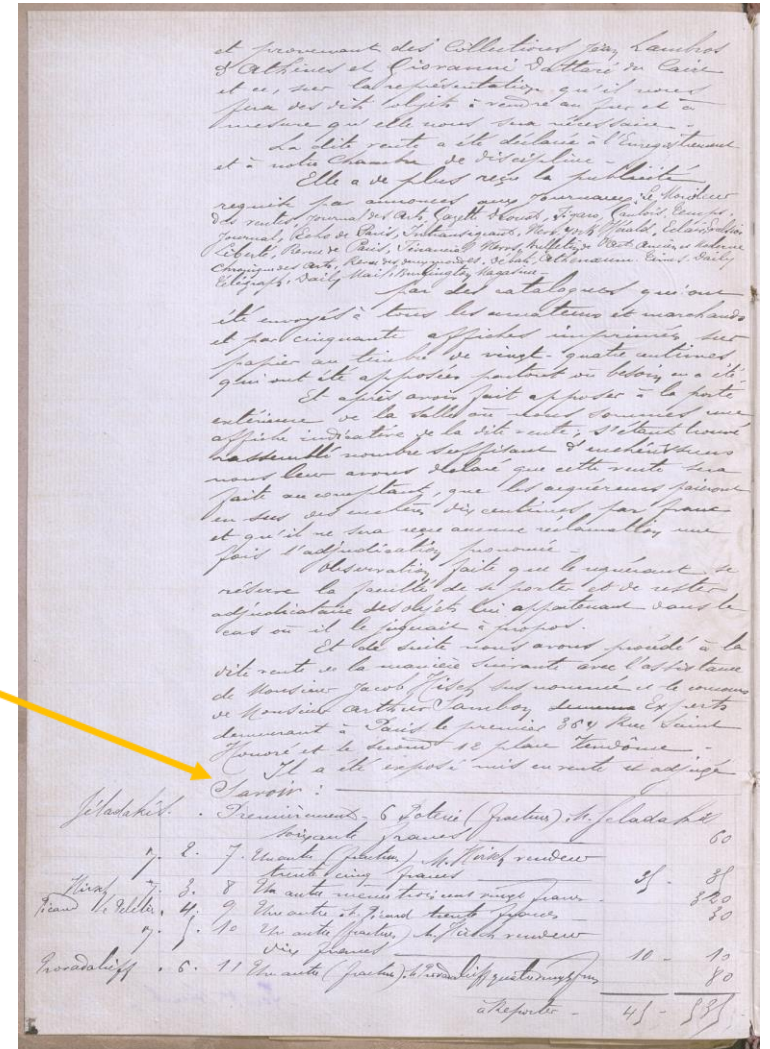 et provenant des Collections Jean Lambros
d'Athènes et Giovanni Dattari du Caire
et ce, sur la représentation qu'il nous
fera des dits objets à vendre au fur et à
mesure qu'elle nous sera nécessaire -
La dite vente a été déclarée à l'Enregistrement
et à notre Chambre de discipline -
Elle a de plus reçu la publicité
requise par annonces aux Journaux, Le Moniteur
des ventes, Journal des Arts, Gazette Drouot, Figaro, Gaulois, Temps,
Journal, Echo de Paris, Intransigeant, New York Hérald, Eclair,
Liberté, Revue de Paris, Financial News, Bulletin de l'art ancien et moderne
Chronique des Arts, Revue des deux mondes, Athenaeum. Times. Daily
Telegraph, Daily Mail, Burlington Magazine -
par des catalogues qui ont
été envoyés à tous les amateurs et marchands
et par cinquante affiches imprimées sur
papier au timbre de vingt-quatre centimes
qui ont été apposées partout où besoin en a été
Et après avoir fait apposer à la porte
extérieure de la salle où nous sommes une
affiche indicative de la dite vente, s'étant trouvé
rassemblé nombre suffisant d'enchérisseurs
nous leur avons déclaré que cette vente sera
faite au comptant, que les acquéreurs paieront
en sus des enchères dix centimes par franc
et qu'il ne sera reçu aucune réclamation une
fois l'adjudication prononcée -
Observation faite que le requérant se
réserve la faculté de se porter et de rester
adjudicataire des objets lui appartenant dans le
cas où il le jugerait à propos.
Et de suite nous avons procédé à la
dite vente de la manière suivante avec l'assistance
de Monsieur Jacob Hirsch susnommé et le concours
de Monsieur Arthur Sambon Experts
demeurant à Paris le premier 364 Rue Saint
Honoré et le second 12 place Vendôme -
Il a été exposé mis en vente et adjugé
Savoir :
Géladakis . Premièrement - 6 Poterie (fracture) M. Geladakis
soixante francs 60
v. 2. 7. Un autre (fracture) M. Hirsch vendeur
trente cinq francs 35 - 35
Hirsch v. 3. 8 Un autre même trois cent vingt francs - 320
Picard 4. 9 Un autre id. Picard trente francs - 30
v. 5. 10 Un autre (fracture) M. Hirsch vendeur
dix francs 10 - 10
. 6. 11 Un autre (fracture) 80
à Reporter - 45 - 535